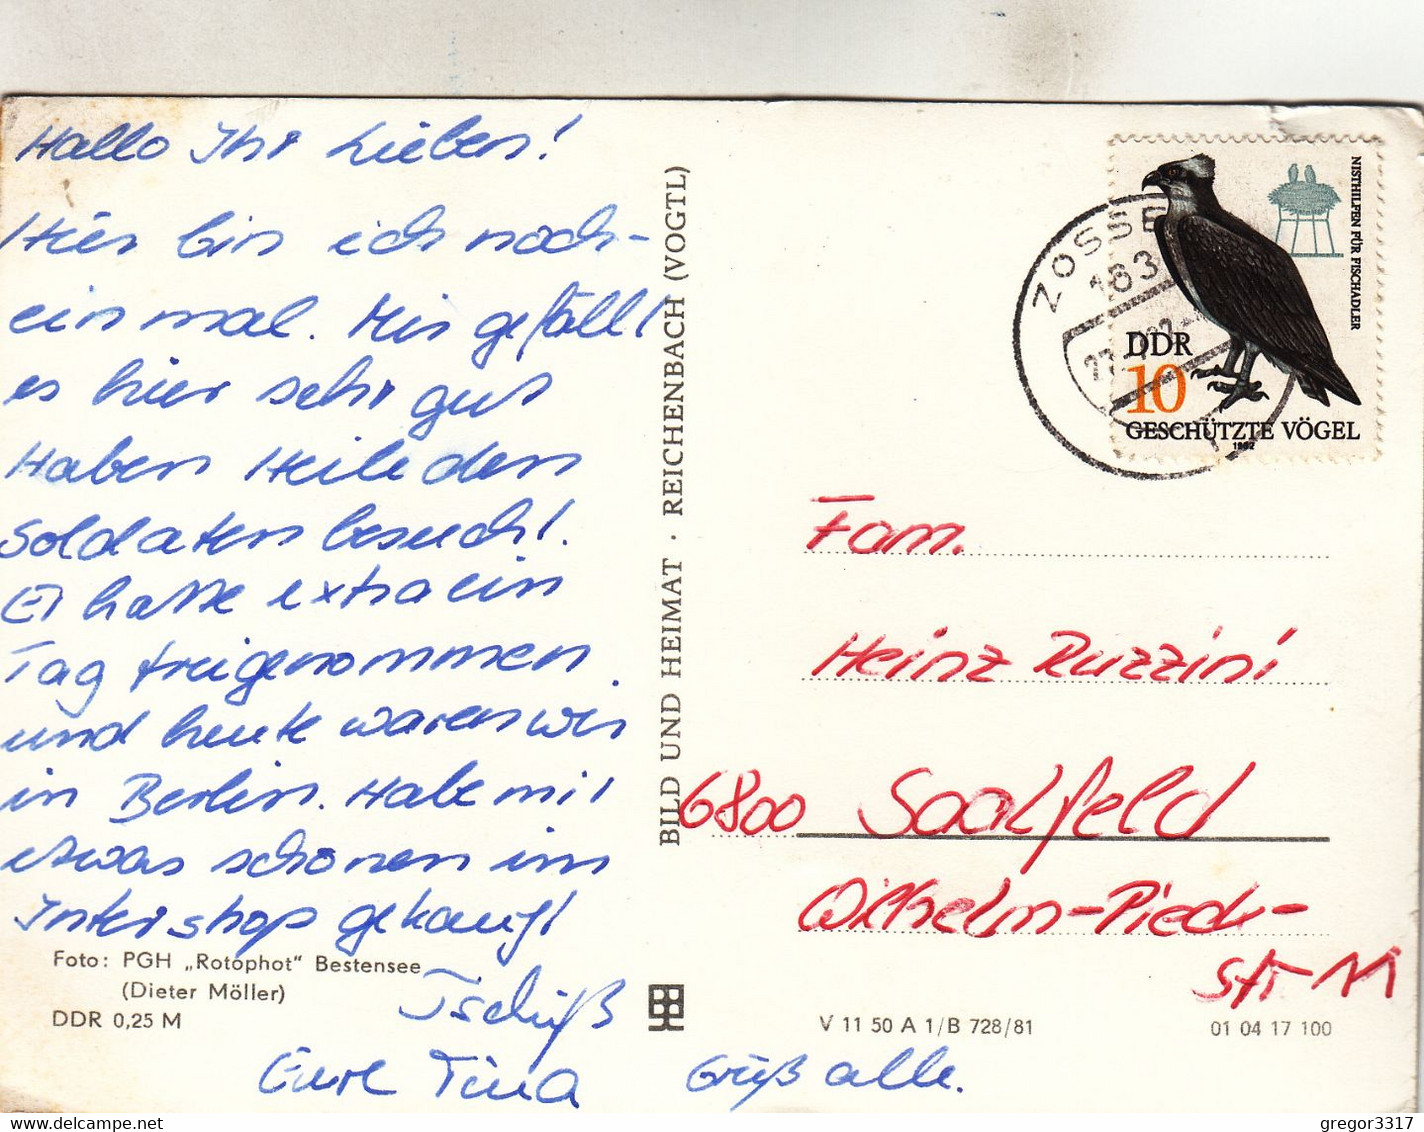 Hallo Ihr Lieben!
Hier bin ich noch-
einmal. Mir gefällt
es hier sehr gut
Haben Heile den
Soldaten besucht.
Er hatte extra ein
Tag freigenommen
und heute waren wir
in Berlin. Habe mir
etwas schönen im
Intershop gekauft
Tschüß
Eure Tina
Grüß alle.
Foto: PGH „Rotophot" Bestensee
(Dieter Möller)
DDR 0,25 M
BILD UND HEIMAT · REICHENBACH (VOGTL)
V 11 50 A 1/B 728/81
01 04 17 100
ZOSSE
183
NISTHILFEN FÜR FISCHADLER
DDR
10
GESCHÜTZTE VÖGEL
1982
Fam.
Heinz Ruzzini
6800 Saalfeld
Wilhelm-Pieck-
Str 11
gregor3317